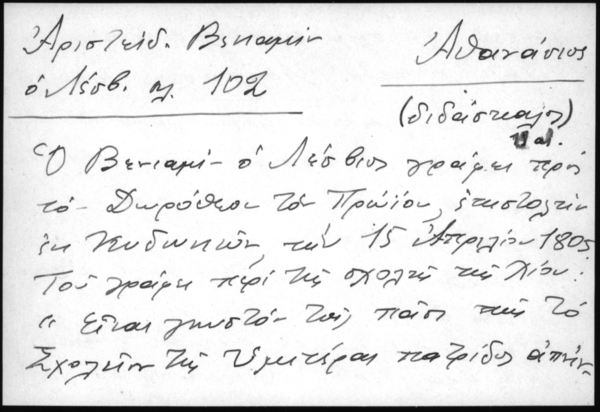 Ἀριστείδ. Βενιαμὶν
ὁ Λέσβ. σελ. 102
Ἀθανάσιος
(διδάσκαλος)
Ὁ Βενιαμὶν ὁ Λέσβιος γράφει πρὸς
τὸν Δωρόθεον τὸν Πρώϊον, ἐπιστολὴν
ἐκ Κυδωνιῶν, τὴν 15 Ἀπριλίου 1805
Τοῦ γράφει περὶ τῆς σχολῆς τῆς Χίου:
"Εἶναι γνωστὸν τοῖς πᾶσι τὸ
Σχολεῖον τῆς ὑμετέρας πατρίδος